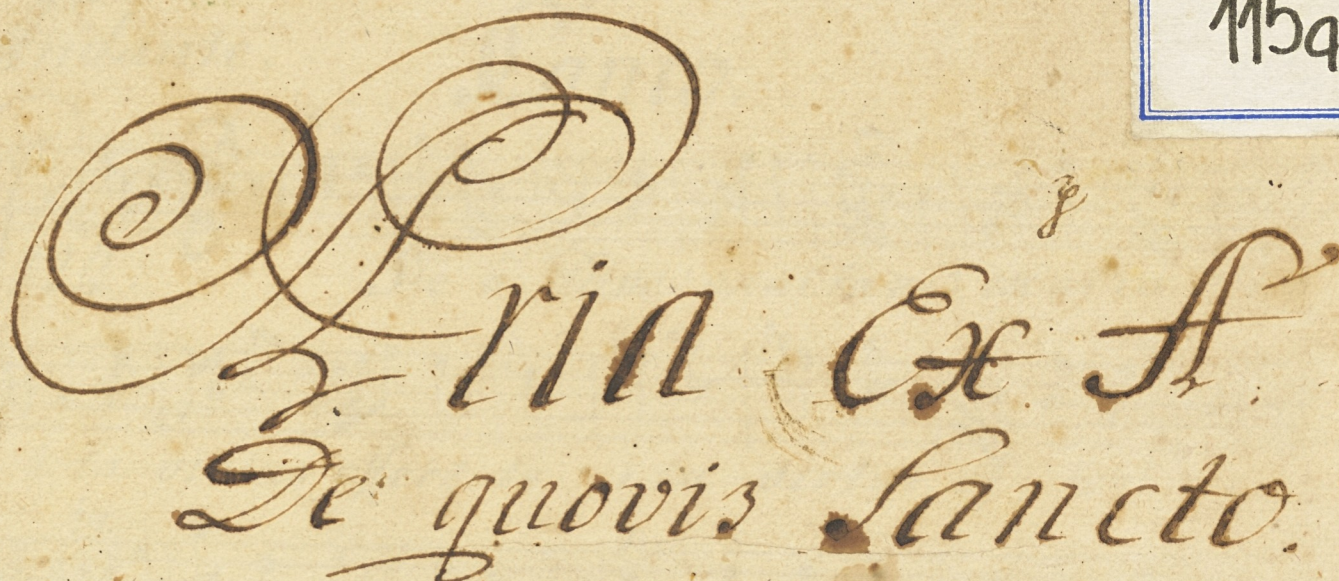 115a
Aria Ex A
De quovis Sancto.